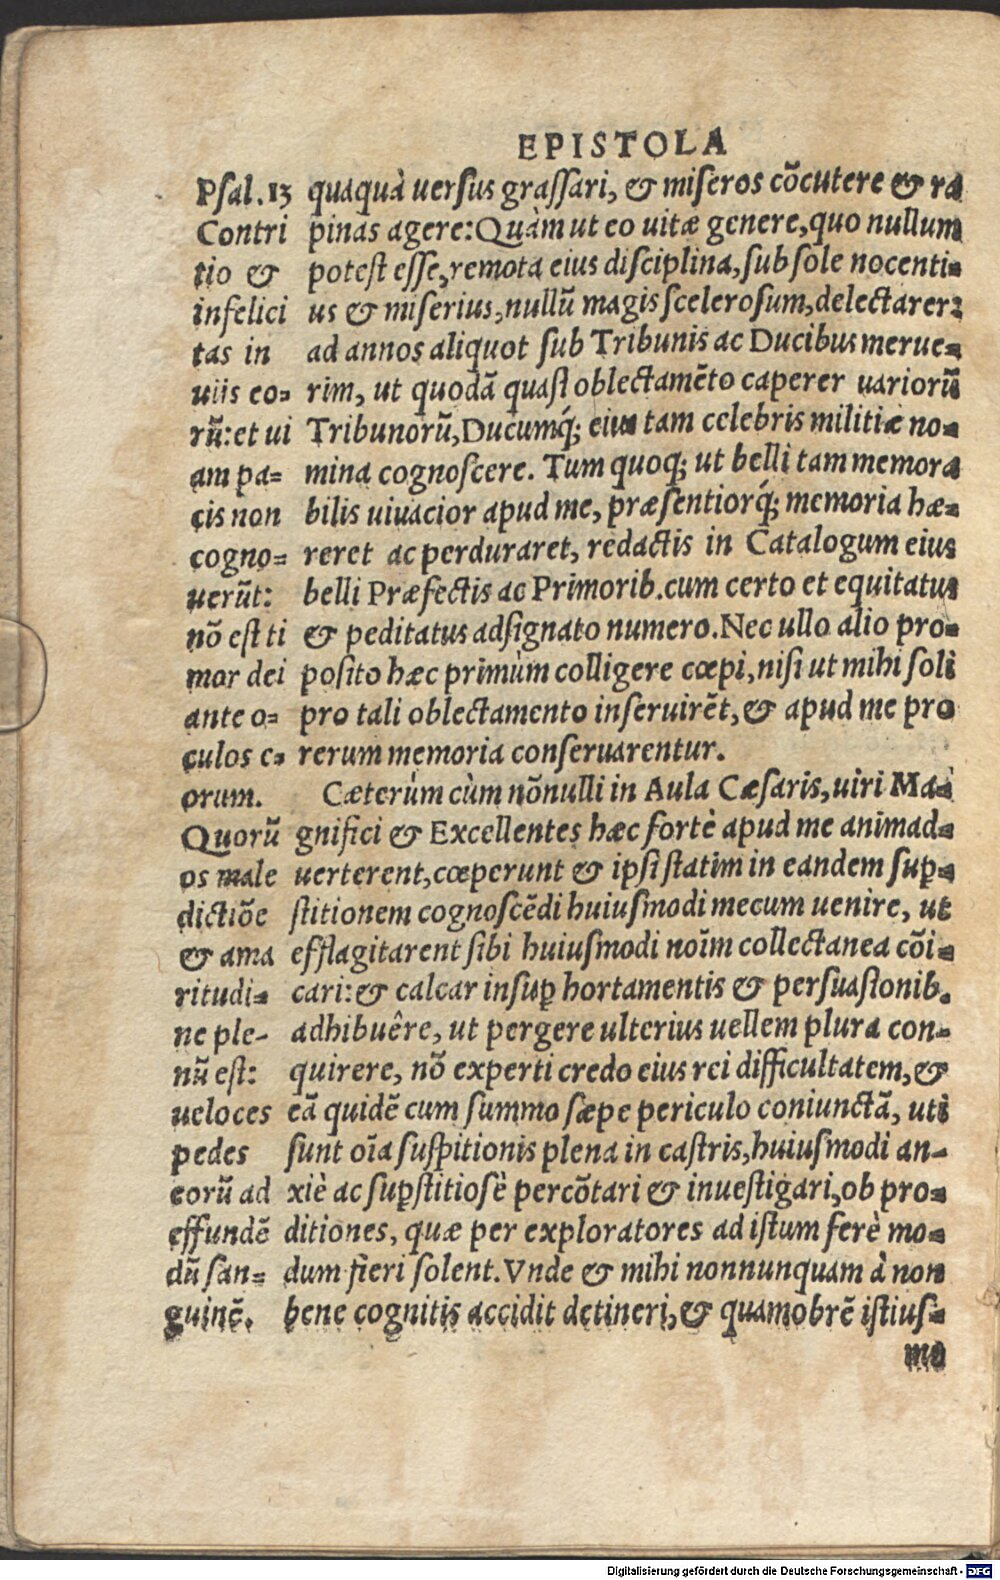 EPISTOLA
Psal. 13
Contri
tio &
infelici
tas in
uiis eo=
rū: et ui
am pa=
cis non
cogno=
uerūt:
nō est ti
mor dei
ante o=
culos e=
orum.
Quorū
os male
dictiōe
& ama
ritudi=
ne ple-
nū est:
ueloces
pedes
eorū ad
effundē
dū san=
guinē.
quaquà uersus grassari, & miseros cōcutere & ra
pinas agere: Quàm ut eo uitæ genere, quo nullum
potest esse, remota eius disciplina, sub sole nocenti=
us & miserius, nullū magis scelerosum, delectarer:
ad annos aliquot sub Tribunis ac Ducibus merue=
rim, ut quodā quasi oblectamēto caperer uariorū
Tribunorū, Ducumq́; eius tam celebris militiæ no=
mina cognoscere. Tum quoq; ut belli tam memora
bilis uiuacior apud me, præsentiorq́; memoria hæ=
reret ac perduraret, redactis in Catalogum eius
belli Præfectis ac Primorib. cum certo et equitatus
& peditatus adsignato numero. Nec ullo alio pro=
posito hæc primùm colligere cœpi, nisi ut mihi soli
pro tali oblectamento inseruirēt, & apud me pro
rerum memoria conseruarentur.
Cæterùm cùm nōnulli in Aula Cæsaris, uiri Ma=
gnifici & Excellentes hæc fortè apud me animad=
uerterent, cœperunt & ipsi statim in eandem suꝑ=
stitionem cognoscēdi huiusmodi mecum uenire, ut
efflagitarent sibi huiusmodi noīm collectanea cōi=
cari: & calcar insuꝑ hortamentis & persuasionib.
adhibuêre, ut pergere ulterius uellem plura con=
quirere, nō experti credo eius rei difficultatem, &
eā quidē cum summo sæpe periculo coniunctā, uti
sunt oīa suspitionis plena in castris, huiusmodi an-
xiè ac suꝑstitiosè percōtari & inuestigari, ob pro=
ditiones, quæ per exploratores ad istum ferè mo=
dum fieri solent. Vnde & mihi nonnunquam à non
bene cognitis accidit detineri, & quamobrē istius=
mo
Digitalisierung gefördert durch die Deutsche Forschungsgemeinschaft - DFG